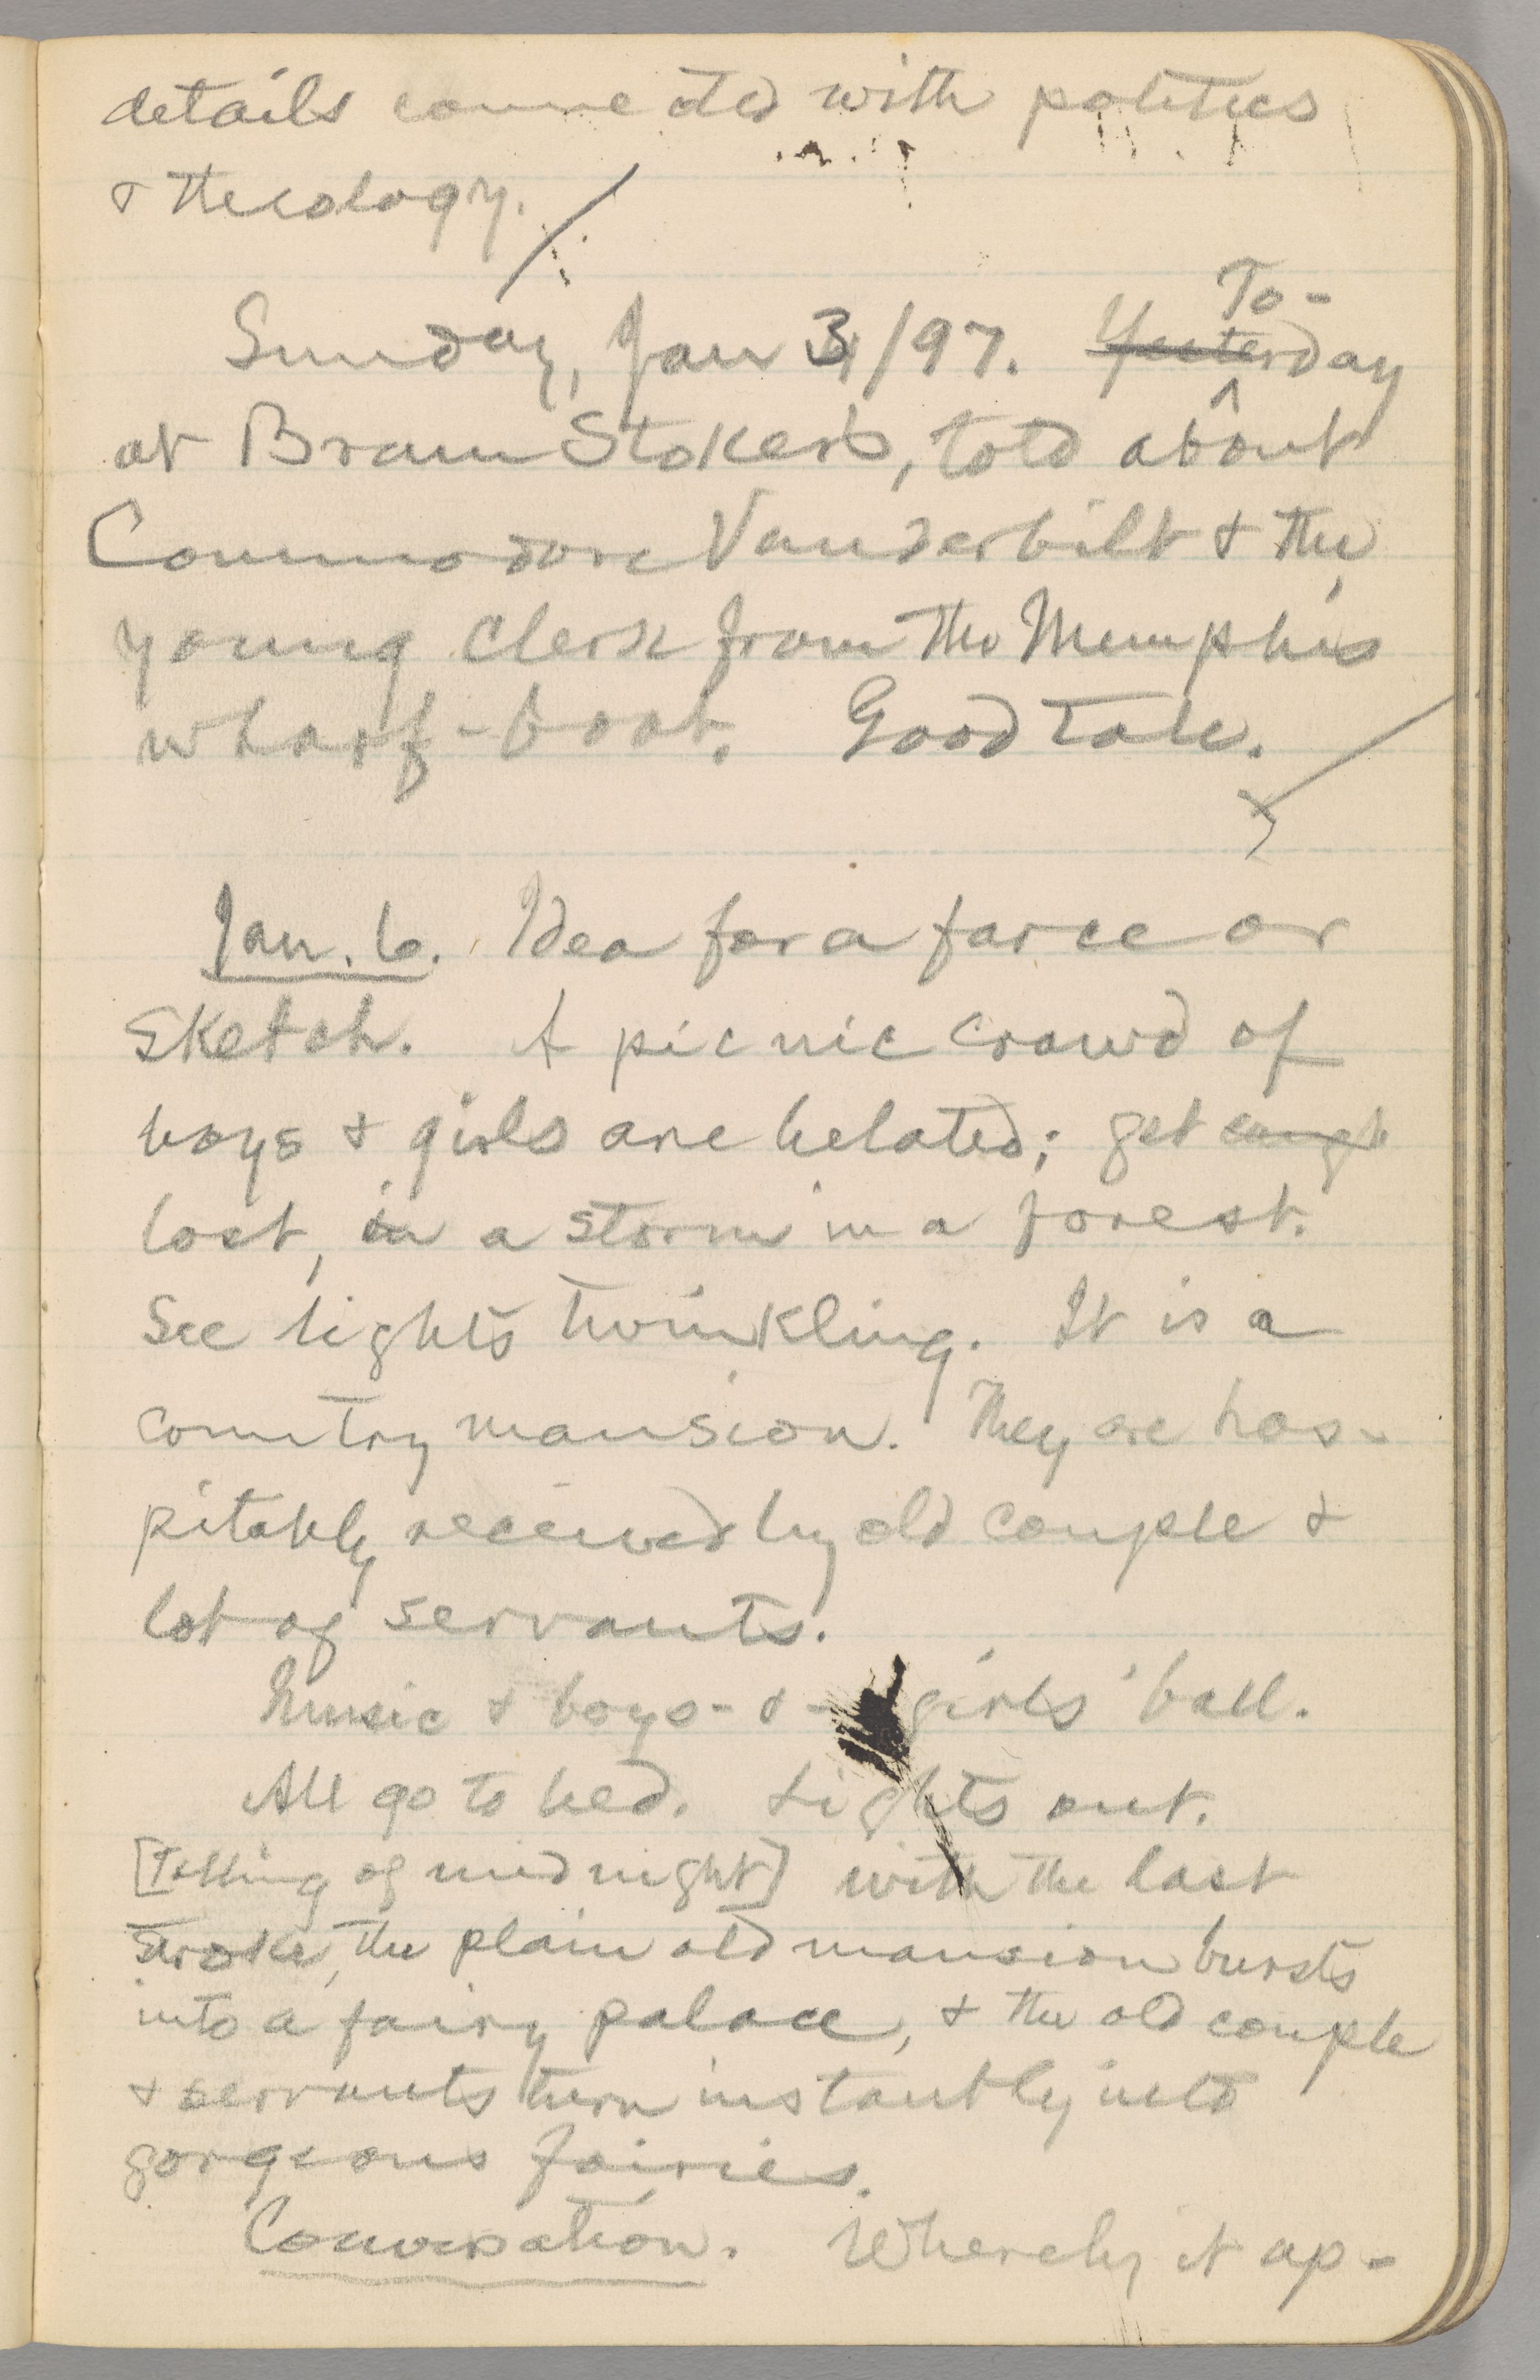 details connected with politics
& theology.
To-
Sunday, Jan 3/97. Yesterday
at Bram Stoker's, told about
Commodore Vanderbilt & the
young clerk from the Memphis
wharf-boat. Good tale.
Jan. 6. Idea for a farce or
sketch. A picnic crowd of
boys & girls are belated; get caught
lost, in a storm in a forest.
See lights twinkling. It is a
country mansion. They are hos-
pitably received by old couple &
lot of servants.
Music & boys-&-girls' ball.
All go to bed. Lights out.
[Tolling of midnight] with the last
stroke, the plain old mansion bursts
into a fairy palace, & the old couple
& servants turn instantly into
gorgeous fairies.
Conversation. Whereby it ap-